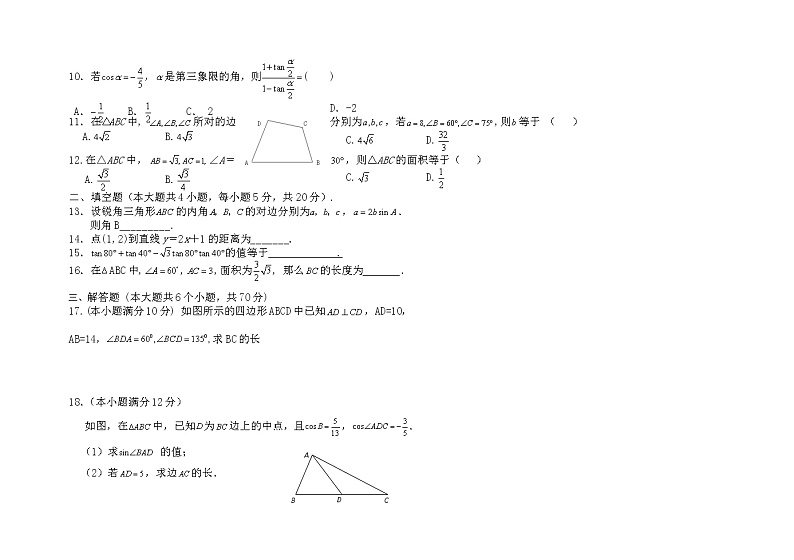 10. 若cosα=-4/5, α是第三象限的角, 则(1+tan α/2)/(1-tan α/2)=( )
A. -1/2 B. 1/2 C. 2 D. -2
11. 在△ABC中, ∠A,∠B,∠C所对的边分别为a,b,c, 若a=8,∠B=60°,∠C=75°, 则b等于 ( )
A.4√2 B.4√3 C.4√6 D.32/3
12.在△ABC中, AB=√3, AC=1, ∠A=30°, 则△ABC的面积等于( )
A.√3/2 B.√3/4 C.√3 D.1/2
D C
A B
二、填空题(本大题共4小题, 每小题5分, 共20分).
13. 设锐角三角形ABC的内角A, B, C的对边分别为a, b, c, a=2bsin A.
则角B_________.
14. 点(1,2)到直线y=2x+1的距离为_______.
15. tan80°+tan40°-√3tan80°tan40°的值等于____________.
16. 在△ABC中, ∠A=60°, AC=3, 面积为3/2√3, 那么BC的长度为_______.
三、解答题(本大题共6个小题, 共70分)
17.(本小题满分10分) 如图所示的四边形ABCD中已知AD⊥CD, AD=10,
AB=14, ∠BDA=60⁰,∠BCD=135⁰, 求BC的长
18.(本小题满分12分)
如图, 在△ABC中, 已知D为BC边上的中点, 且cosB=5/13, cos∠ADC=-3/5.
(1)求sin∠BAD 的值;
(2)若AD=5, 求边AC的长.
A
B D C